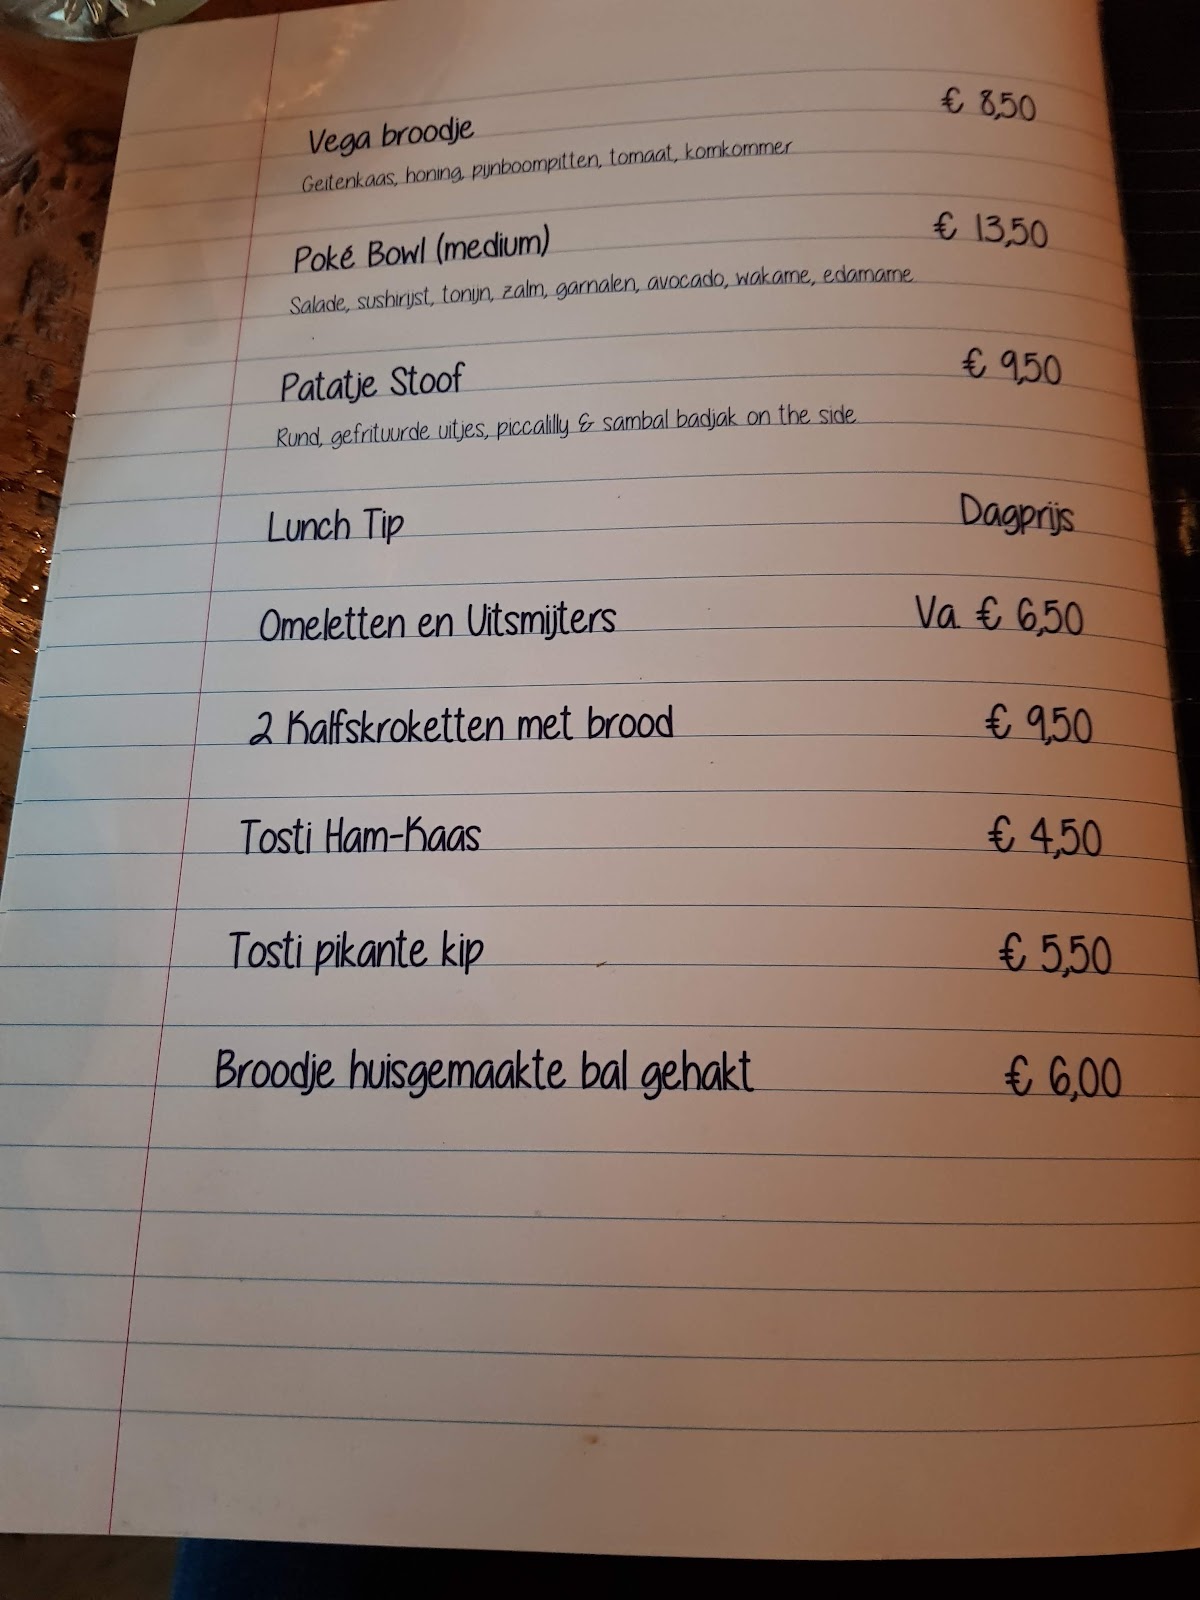 Vega broodje € 8,50
Geitenkaas, honing, pijnboompitten, tomaat, komkommer
Poké Bowl (medium) € 13,50
Salade, sushirijst, tonijn, zalm, garnalen, avocado, wakame, edamame
Patatje Stoof € 9,50
Rund, gefrituurde uitjes, piccalilly & sambal badjak on the side
Lunch Tip Dagprijs
Omeletten en Uitsmijters Va. € 6,50
2 Kalfskroketten met brood € 9,50
Tosti Ham-Kaas € 4,50
Tosti pikante kip € 5,50
Broodje huisgemaakte bal gehakt € 6,00